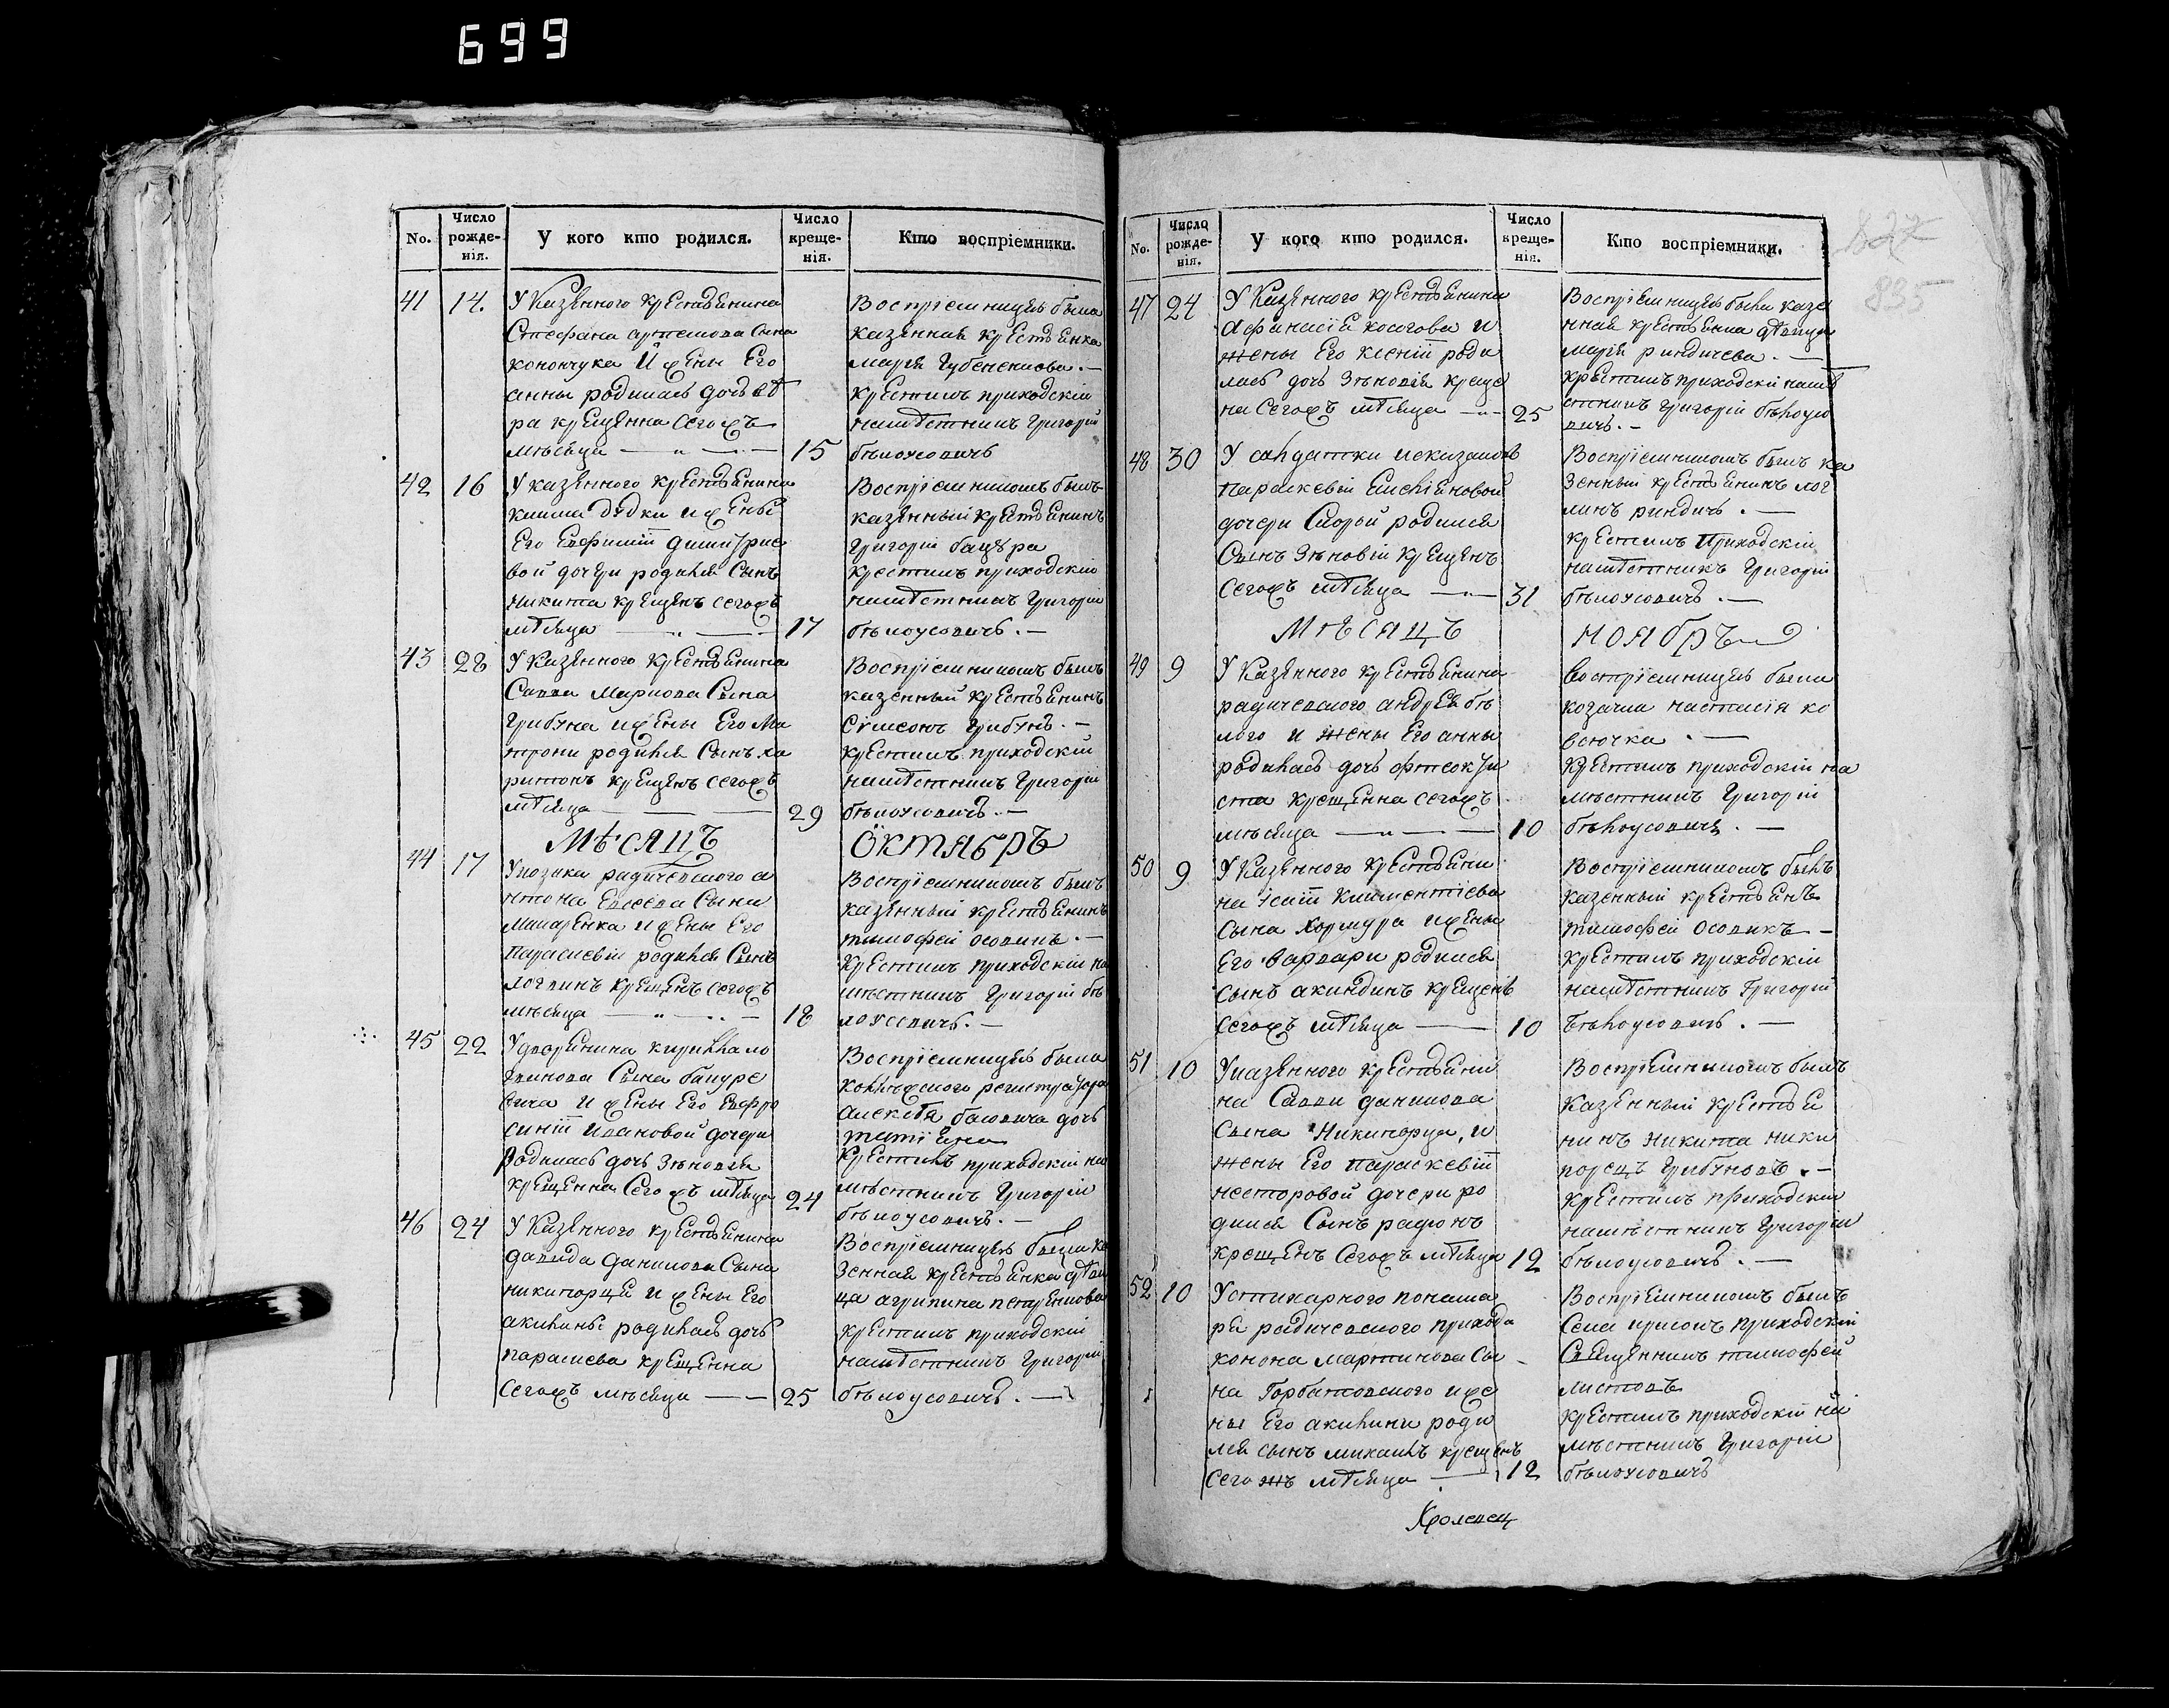 699
No.
Число рожде-нія.
У кого кто родился.
Число креще-нія.
Кто воспріемники.
41 14. У Казенного крестьянина
Стефана артемова сына
конончука И жены Его
анны родилась дочь
ра крещенна сегожъ
мѣсяца 15
Воспріемницею была
казенная крестьянка
марія
крестилъ приходскій
намѣстникъ Григорій
бѣлоусовичъ
42 16 У казенного крестьянина
дѣдки и жены
Его Евфиміи димитріе
вой дочери родился Сынъ
Никита крещенъ сегожъ
мѣсяца 17
Воспріемникомъ былъ
казенный крестьянинъ
Григорій
крестилъ приходскій
намѣстникъ Григорій
бѣлоусовичъ.
43 28 У Казенного крестьянина
Савва Маркова Сына
Грибуна и жены Его Ма
трони родился Сынъ ха
ритонъ крещенъ сегожъ
мѣсяца 29
Воспріемникомъ былъ
казенный крестьянинъ
Сѵмеонъ Грибунъ.
крестилъ приходскій
намѣстникъ Григорій
бѣлоусовичъ.
Мѣсяцъ Октябръ
44 17 У козака радичевского а
нтона Евсеева Сына
Макаренка и жены Его
Параскевіи родился Сынъ
логвинъ крещенъ сегожъ
мѣсяца 18
Воспріемникомъ былъ
казенный крестьянинъ
тимофей осовикъ.
Крестилъ приходскій на
мѣстникъ Григорій бѣ
лоусовичъ.
45 22 У дворянина кирилла ло
гвинова Сына бакуре
вича и жены Его Евфро
синіи Ивановой дочери
родилась дочь Зѣновія
крещенна Сегожъ мѣсяца 24
Воспріемницею была
коллѣжского регистратора
алексѣя басовича дочь
татіяна
Крестилъ приходскій на
мѣстникъ Григорій
бѣлоусовичъ.
46 24 У Казенного крестьянина
давида данилова Сына
никипорця и жены Его
акилины родилась дочь
параскева крещенна
сегожъ мѣсяца 25
Воспріемницею была ка
зенная крестьянка дѣви
ца агрипина петренкова
крестилъ приходскій
намѣстникъ Григорій
бѣлоусовичъ.
835
No.
Число рожде-нія.
У кого кто родился.
Число креще-нія.
Кто воспріемники.
47 24 У Казенного крестьянина
Афанасія косогова и
жены Его ксеніи роди
лась дочь Зѣновія креще
на сегожъ мѣсяца 25
Воспріемницею была казе
нная крестьянка дѣвица
марія риндичева.
крестилъ приходскій намѣ
стникъ Григорій бѣлоусо
вичъ.
48 30 У солдатки
Параскевіи
дочери родился
Сынъ Зѣновій крещенъ
сегожъ мѣсяца 31
Воспріемникомъ былъ ка
зенный крестьянинъ лог
винъ риндичъ.
крестилъ Приходскій
намѣстникъ Григорій
бѣлоусовичъ.
Мѣсяцъ ноябръ
49 9 У Казенного крестьянина
радичевского андрея бѣ
лого и жены Его анны
родилась дочь фтеокти
ста крещенна сегожъ
мѣсяца 10
воспріемницею была
козачка настасія ко
всючка
Крестилъ приходскій на
мѣстникъ Григорій
бѣлоусовичъ.
50 9 У Казенного крестьяни
на Климентіева
сына и жены
Его варвари родился
сынъ акиндинъ крещенъ
сегожъ мѣсяца 10
Воспріемникомъ былъ
казенный крестьянъ
тимофей осовикъ
крестилъ приходскій
намѣстникъ Григорій
Бѣлоусовичъ.
51 10 У казенного крестьяни
на Савви данилова
сына Никипорця, и
жены Его параскевіи
несторовой дочери ро
дился Сынъ радіонъ
крещенъ Сегожъ мѣсяца 12
Воспріемникомъ былъ
Казенный крестья
нинъ никита ники
порецъ Грибуновъ.
крестилъ приходскій
намѣстникъ Григорій
бѣлоусовичъ.
52 10 У стихарного понома
ря радичевского прихода
конона мартинова Сы
на Горбатовского и же
ны Его акилини роди
лся сынъ михаилъ крещенъ
Сегожъ мѣсяца 12
Воспріемникомъ былъ
Села приходскій
Священникъ тимофей
листовъ
крестилъ приходскій на
мѣстникъ Григорій
бѣлоусовичъ